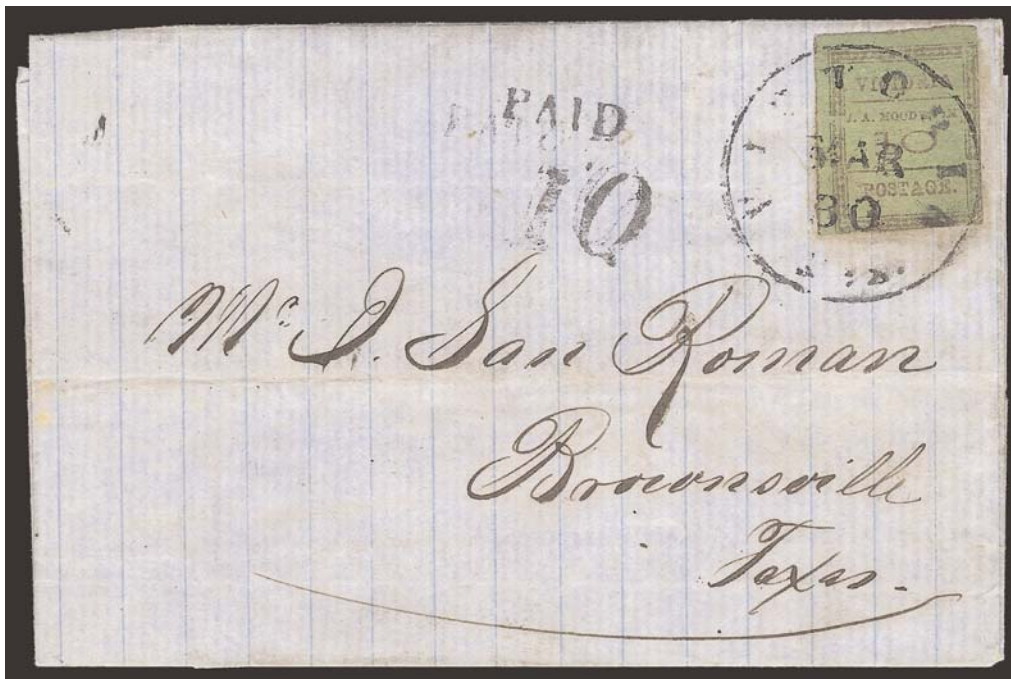 PAID
10
VICTORIA
MAR
30
J. A. MOODY
10
POSTAGE.
Mr. J. San Roman
Brownsville
Texas.